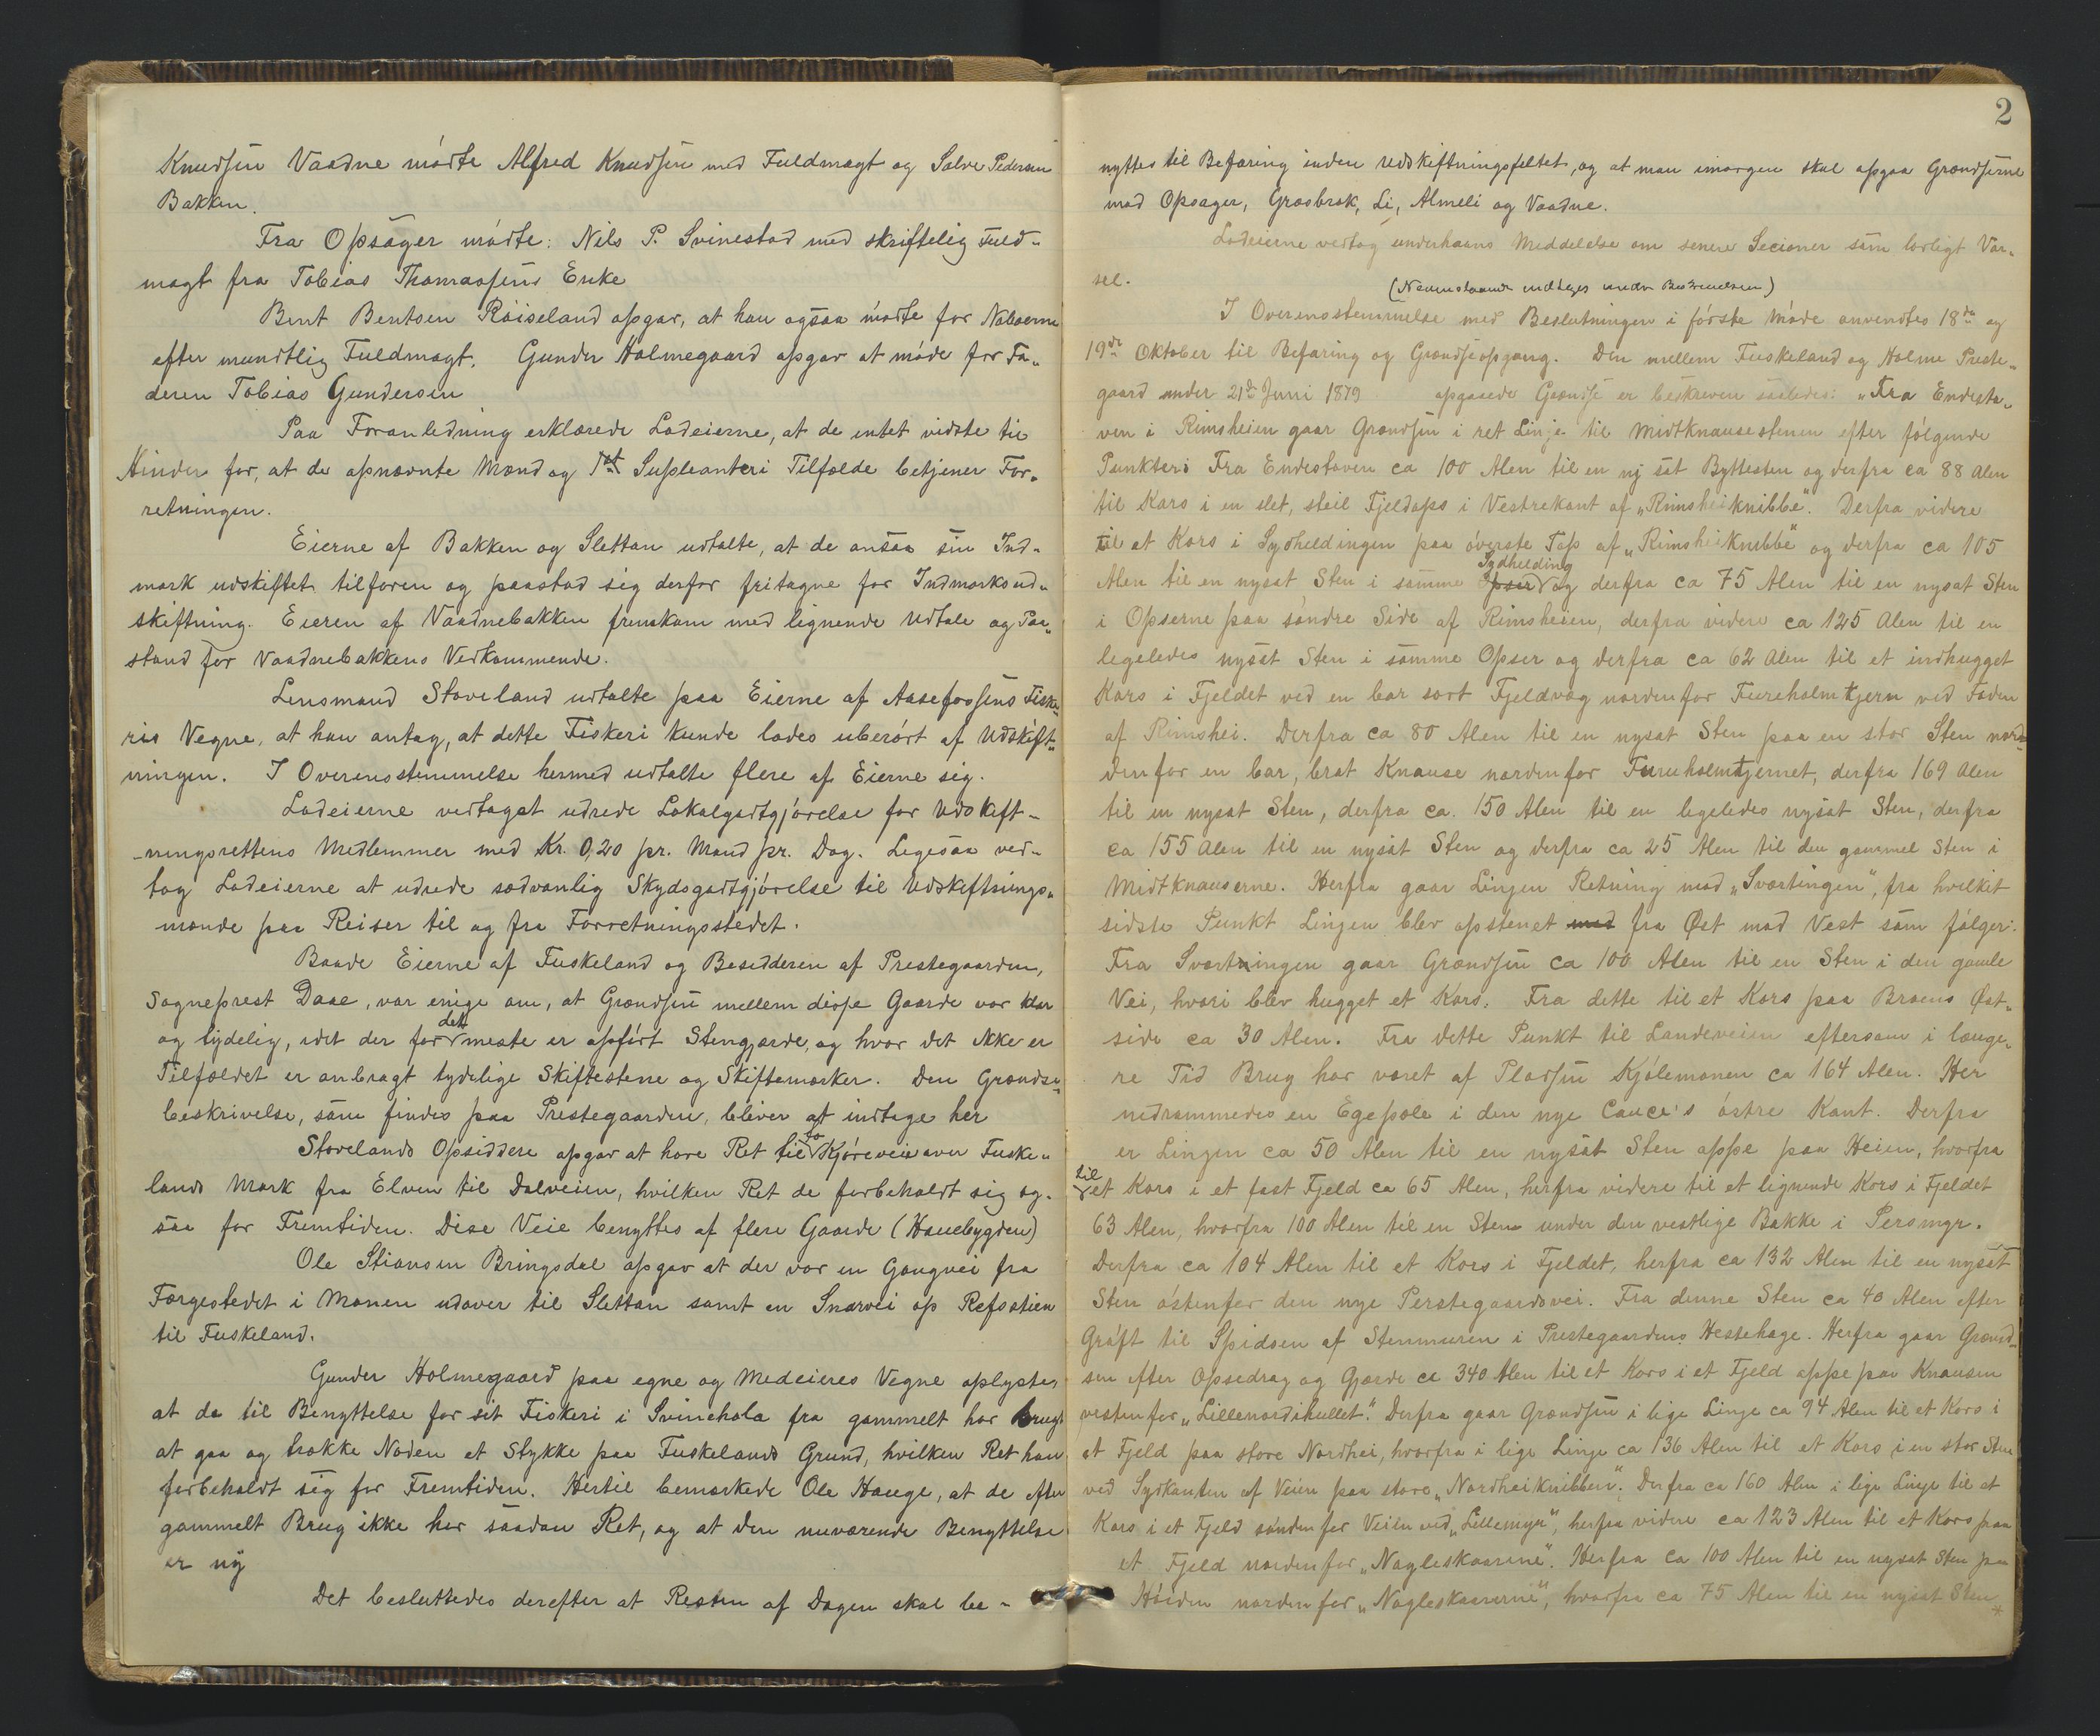 Knudsen Vaadne mødte Alfred Knudsen med Fuldmagt og Salve Pedersen
Bakken.
Fra Opsager mødte: Nils P. Svinestad med skriftelig Fuld-
magt fra Tobias Thomassens Enke
Bent Bentsen Røiseland opgav, at han ogsaa mødte for Naboerne
efter mundtlig Fuldmagt. Gunder Holmegaard opgav at møde for Fa-
deren Tobias Gundersen
Paa Foranledning erklærede Lodeierne, at de intet vidste til
Hinder for, at de opnævnte Mænd og 1st Supleanter i Tilfælde betjener For-
retningen.
Eierne af Bakken og Slettan udtalte, at de ansaa sin Ind-
mark udskiftet tilforen og paastod sig derfor fritagne for Indmarksud-
skiftning. Eieren af Vaadnebakken fremkom med lignende Udtale og Paa-
stand for Vaadnebakkens Vedkommende.
Lensmand Stoveland udtalte paa Eierne af Aasefossens Fiske-
ris Vegne, at han antog, at dette Fiskeri kunde lades uberørt af Udskift-
ningen. I Overensstemmelse hermed udtalte flere af Eierne sig.
Lodeierne vedtoget udrede Lokalgodtgjørelse for Udskift-
-ningsrettens Medlemmer med Kr. 0,20 pr. Mand pr. Dag. Ligesaa ved-
tog Lodeierne at udrede sædvanlig Skydsgodtgjørelse til Udskiftnings-
mænde paa Reiser til og fra Forretningsstedet.
Baade Eierne af Fuskeland og Besidderen af Prestegaarden,
Sogneprest Daae, var enige om, at Grændsen mellem disse Gaarde var klar
og tydelig, idet der for det meste er opført Stengjærde, og hvor det ikke er
Tilfældet er anbragt tydelige Skiftestene og Skiftemærker. Den Grændse-
beskrivelse, som findes paa Prestegaarden, bliver at indtage her
Stovelands Opsiddere opgav at have Ret til to Kjøreveie over Fuske-
lands Mark fra Elven til Dalveien, hvilken Ret de forbeholdt sig og-
saa for Fremtiden. Disse Veie benyttes af flere Gaarde (Hauebygden)
Ole Stiansen Bringsdal opgav at der var en Gangvei fra
Færgestedet i Monen udover til Slettan samt en Snarvei op Refsstien
til Fuskeland.
Gunder Holmegaard paa egne og Medeieres Vegne oplyste,
at de til Benyttelse for sit Fiskeri i Svinehola fra gammelt har brugt
at gaa og trække Noden et Stykke paa Fuskelands Grund, hvilken Ret han
forbeholdt sig for Fremtiden. Hertil bemærkede Ole Hauge, at de efter
gammelt Brug ikke har saadan Ret, og at den nuværende Benyttelse
er ny
Det besluttedes derefter at Resten af Dagen skal be-
2
nyttes til Befaring inden Udskiftningsfeltet, og at man imorgen skal opgaa Grændserne
mod Opsager, Græsbrok, Li, Almeli og Vaadne.
Lodeierne vedtog underhaans Meddelelse om senere Secioner som lovligt Var-
sel.
I Overensstemmelse med Beslutningen i første Møde anvendtes 18de og
19de Oktober til Befaring og Grændseopgang. Den mellem Fuskeland og Holme Preste-
gaard under 21de Juni 1879 opgaaede Grændse er beskreven saaledes: „Fra Endesta-
ven i Rimsheien gaar Grændsen i ret Linje til Midtknausestenen efter følgende
Punkter: Fra Endestaven ca 100 Alen til en ny sat Byttesten og derfra ca 88 Alen
til Kors i en slet, steil Fjeldops i Vestrekant af „Rimsheiknibbe“. Derfra videre
til et Kors i Sydheldingen paa øverste Top af „Rimsheiknibbe“ og derfra ca 105
Alen til en nysat Sten i samme Opser Sydhelding og derfra ca 75 Alen til en nysat Sten
i Opserne paa søndre Side af Rimsheien, derfra videre ca 125 Alen til en
legeledes nysat Sten i samme Opser og derfra ca 62 Alen til et indhugget
Kors i Fjeldet ved en bar sort Fjeldvæg nordenfor Fureholmtjern ved Foden
af Rimshei. Derfra ca 80 Alen til en nysat Sten paa en stor Sten nor-
denfor en bar, brat Knause nordenfor Fureholmtjernet, derfra 169 Alen
til en nysat Sten, derfra ca. 150 Alen til en legeledes nysat Sten, derfra
ca 155 Alen til en nysat Sten og derfra ca 25 Alen til den gammel Sten i
Midtknauserne. Herfra gaar Linjen Retning mod „Sværtingen“, fra hvilket
sidste Punkt Linjen blev opstenet med fra Øst mod Vest som følger:
Fra Sværtningen gaar Grændsen ca 100 Alen til en Sten i den gamle
Vei, hvori blev hugget et Kors. Fra dette til et Kors paa Broens Øst-
side ca 30 Alen. Fra dette Punkt til Landeveien eftersom i længe-
re Tid Brug har været af Pladsen Kjølemonen ca 164 Alen. Her
nedrammedes en Egepæle i den nye Cauce's østre Kant. Derfra
er Linjen ca 50 Alen til en nysat Sten oppe paa Heien, hvorfra
til et Kors i et fast Fjeld ca 65 Alen, herfra videre til et lignende Kors i Fjeldet
63 Alen, hvorfra 100 Alen til en Sten under den vestlige Bakke i Persmyr.
Derfra ca 104 Alen til et Kors i Fjeldet, herfra ca 132 Alen til en nysat
Sten østenfor den nye Perstegaardsvei. Fra denne Sten ca 40 Alen efter
Grøft til Spidsen af Stenmuren i Prestegaardens Hestehage. Herfra gaar Grænd-
sen efter Opsedrag og Gjærde ca 340 Alen til et Kors i et Fjeld oppe paa Knausen
vestenfor „Lillenordihullet“. Derfra gaar Grændsen i lige Linje ca 94 Alen til et Kors i
et Fjeld paa store Nordhei, hvorfra i lige Linje ca 136 Alen til et Kors i en stor Sten
ved Sydkanten af Veien paa store „Nordheiknibben“. Derfra ca 160 Alen i lige Linje til et
Kors i et Fjeld søndenfor Veien ved „Lillemyr“, herfra videre ca 123 Alen til et Kors paa
et Fjeld nordenfor „Nagleskaarene“. Herfra ca 100 Alen til en nysat Sten paa
Høiden nordenfor „Nagleskaarerne“, hvorfra ca 75 Alen til en nysat Sten *